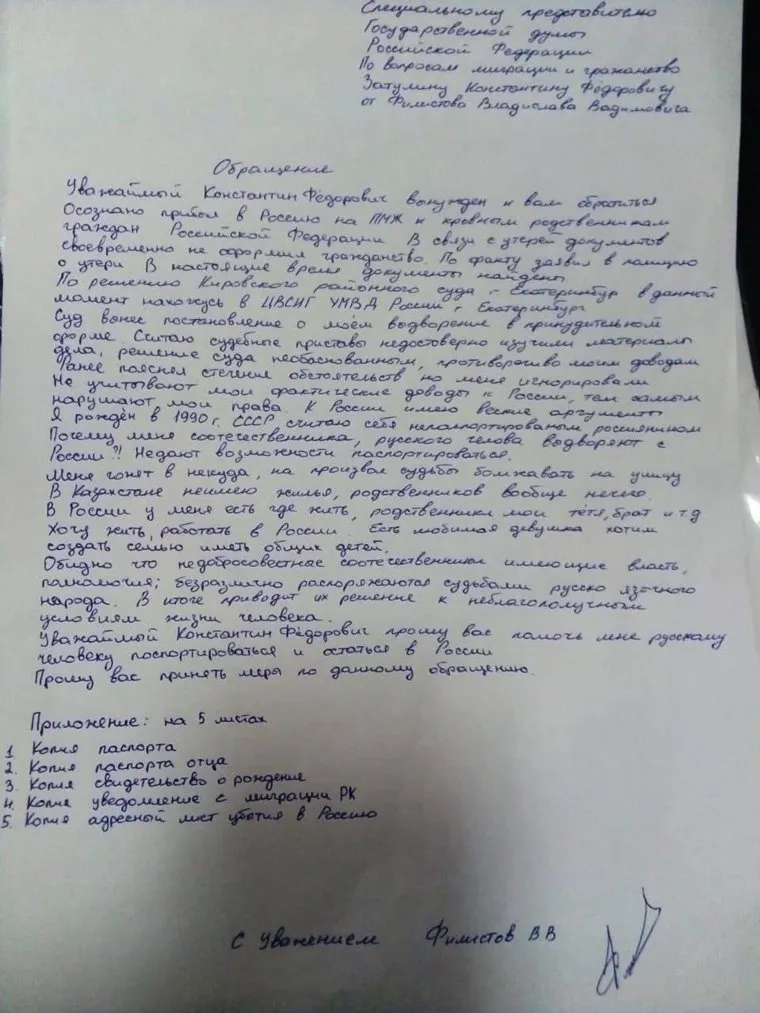 Специальному представителю
Государственной думы
Российской Федерации
По вопросам миграции и гражанство
Затулину Константину Фёдоровичу
от Филистова Владислава Вадимовича
Обращение
Уважаймый Константин Фёдорович вынужден к вам обратиться
Осознано прибыл в Россию на ПМЖ к кревным родственникам
граждан Российской Федерации. В связи с утерей документов
своевременно не оформил гражданство. По факту заявил в полицию
о утери В настоящие время документы найдены
По решению Кировского районного суда г. Екатеринбург в данный
момент нахожусь в ЦВСИГ УМВД России г. Екатеринбург
Суд вынес постановление о моём выдворение в принудительном
форме. Считаю судебные приставы недостоверно изучили материалы
дела, решение суда необаснованным, противоречиво моим доводам
Ранее пояснял стечение обстоятельств но меня игнорировали
Не учитывают мои фактические доводы к России, тем самым
нарушают мои права. К России имею веские аргументы
Я рождён в 1990 г. СССР считаю себя непаспортированым россиянином
Почему меня соотечественника, русского челова выдворяют с
России?! Недают возможности паспортироваться.
Меня гонят в некуда, на произвол судьбы бомжавать на улицу
В Казахстане неимею жилья, родственников вообще нечего.
В России у меня есть где жить, родственники мои тётя, брат и т.д
Хочу жить, работать в России. Есть любимая девушка хотим
создать семью иметь общих детей.
Обидно что недобросовестные соотечественники имеющие власть,
полномочия; безразлично распоряжаются судьбами русско язычного
народа. В итоге приводит их решение к неблагополучным
условиям жизни человека.
Уважаймый Константин Фёдорович прошу вас помочь мне русскому
человеку поспортироваться и остаться в России
Прошу вас принять меры по данному обращению.
Приложение: на 5 листах
1 Копия паспорта
2. Копия паспорта отца
3. Копия свидетельство о рождение
4. Копия уведомление с миграции РК
5. Копия адресный лист убытия в Россию
С Уважением Филистов В В